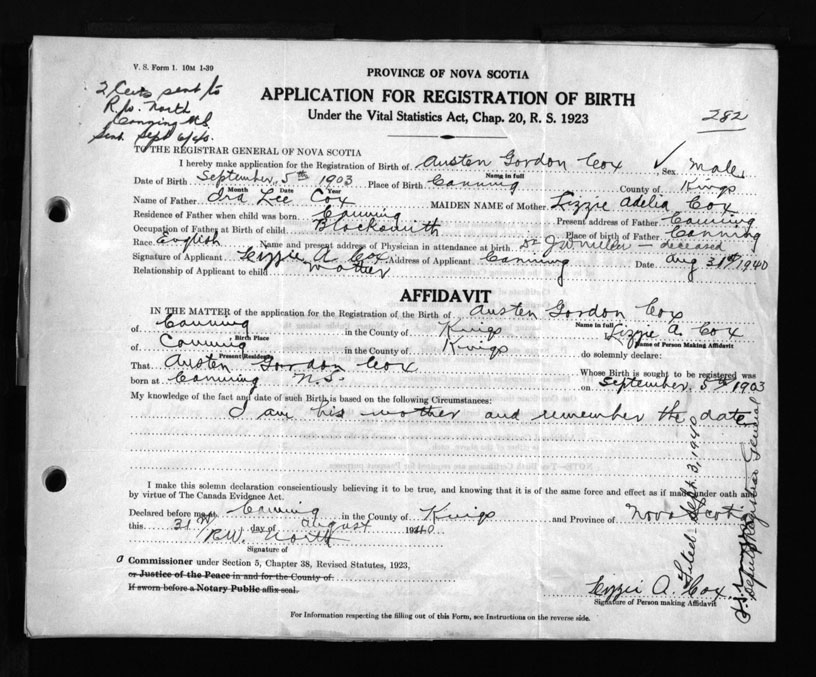 V. S. Form 1. 10M 1-39
2 Certs sent to
R.W. North
Canning N.S.
Sent Sept 6/40.
PROVINCE OF NOVA SCOTIA
APPLICATION FOR REGISTRATION OF BIRTH
282
Under the Vital Statistics Act, Chap. 20, R. S. 1923
TO THE REGISTRAR GENERAL OF NOVA SCOTIA
I hereby make application for the Registration of Birth of Austen Gordon Cox ✓ Sex Male
Name in full
Date of Birth September, 5th 1903 Place of Birth Canning County of Kings
Month Date Year
Name of Father Ora Lee Cox MAIDEN NAME of Mother Lizzie Adelia Cox
Residence of Father when child was born Canning Present address of Father Canning
Occupation of Father at Birth of child Blacksmith Place of birth of Father Canning
Race English Name and present address of Physician in attendance at birth Dr J W Miller — deceased
Signature of Applicant Lizzie A. Cox Address of Applicant Canning Date Aug 31st 1940
Relationship of Applicant to child mother
AFFIDAVIT
IN THE MATTER of the application for the Registration of the Birth of Austen Gordon Cox
Name in full
of Canning in the County of Kings Lizzie A. Cox
Birth Place Name of Person Making Affidavit
of Canning in the County of Kings do solemnly declare:
Present Residence
That Austen Gordon Cox Whose Birth is sought to be registered was
born at Canning N.S. on September, 5th 1903
My knowledge of the fact and date of such Birth is based on the following Circumstances:
I am his mother and remember the date
I make this solemn declaration conscientiously believing it to be true, and knowing that it is of the same force and effect as if made under oath and
by virtue of The Canada Evidence Act.
Declared before me at Canning in the County of Kings and Province of Nova Scotia
this 31st day of August 1940
R.W. North
Signature of
a Commissioner under Section 5, Chapter 38, Revised Statutes, 1923,
or Justice of the Peace in and for the County of
If sworn before a Notary Public affix seal.
Lizzie A. Cox
Signature of Person making Affidavit
For Information respecting the filling out of this Form, see Instructions on the reverse side.
Filed Sept. 3, 1940
Deputy Registrar General